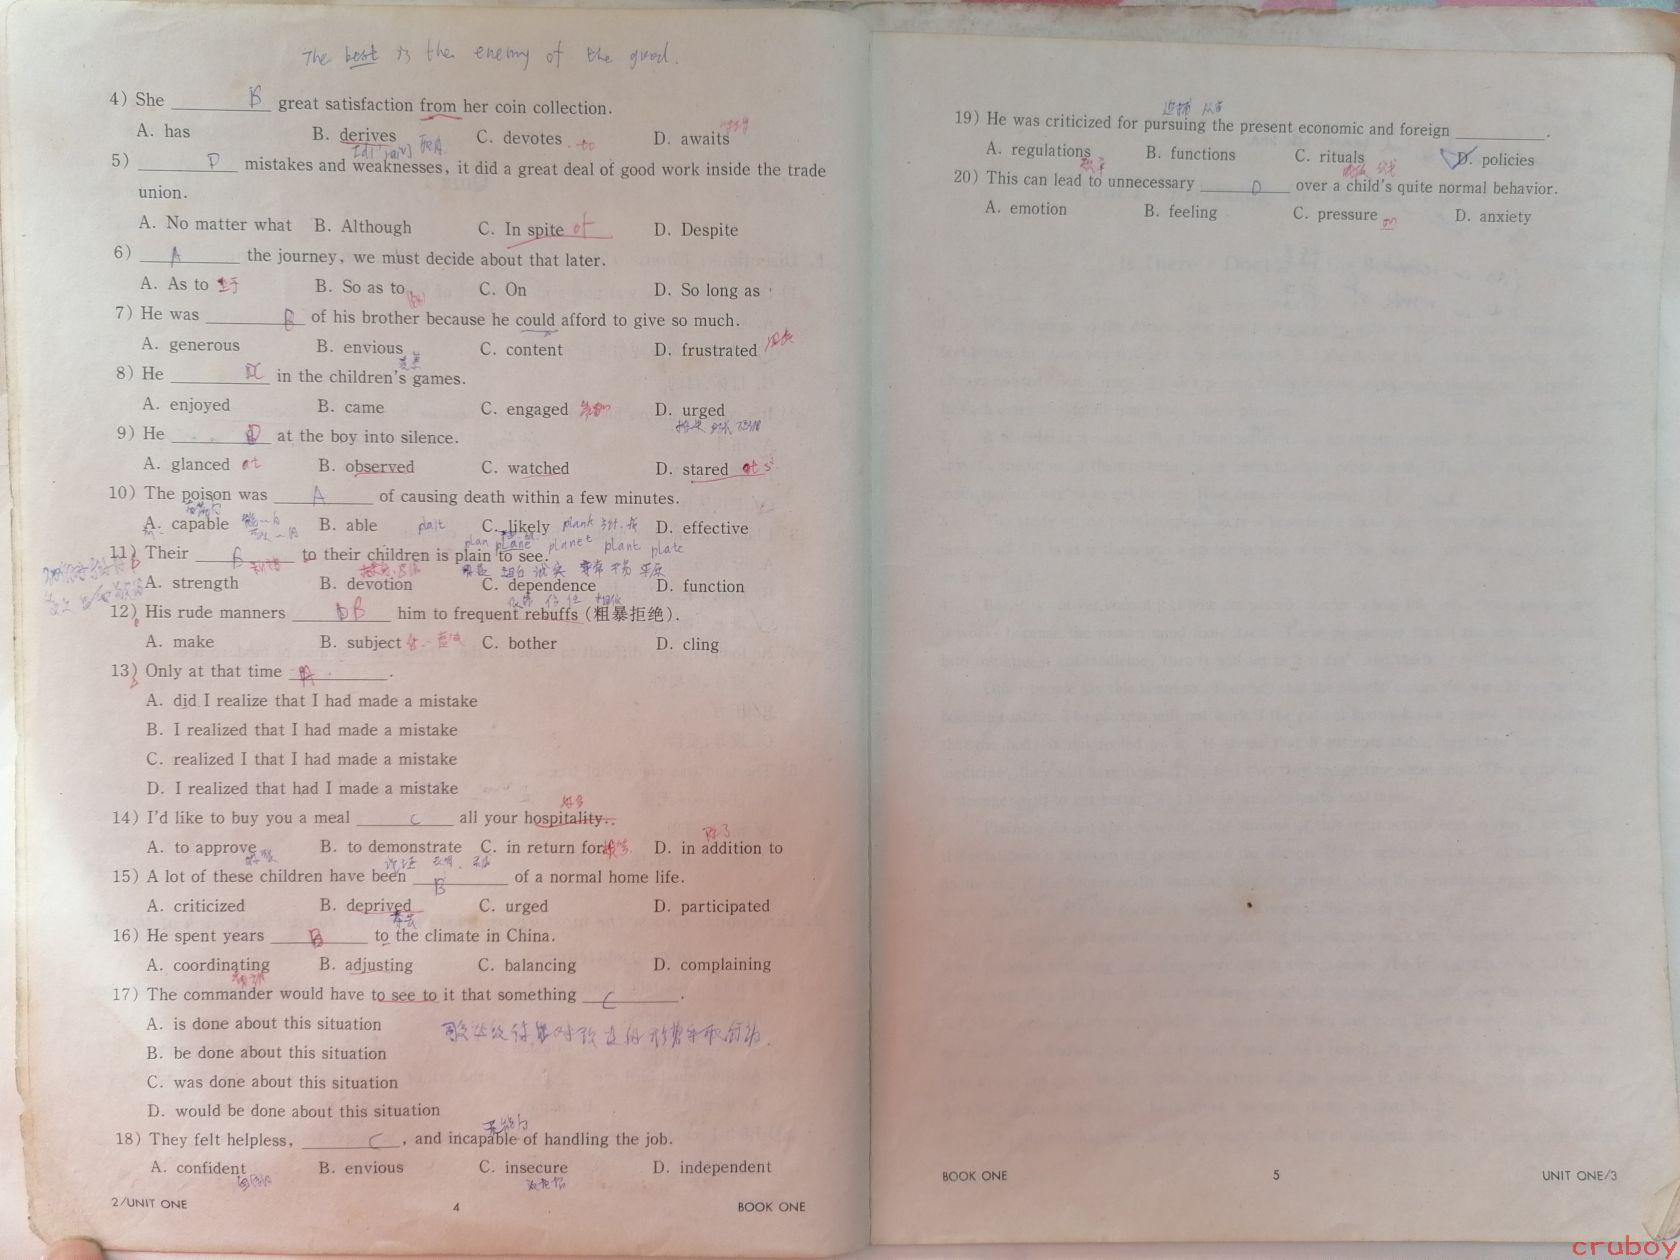 The best is the enemy of the good.
4) She B great satisfaction from her coin collection.
A. has B. derives C. devotes to D. awaits
5) D mistakes and weaknesses, it did a great deal of good work inside the trade
union.
A. No matter what B. Although C. In spite of D. Despite
6) A the journey, we must decide about that later.
A. As to 至于 B. So as to C. On D. So long as
7) He was B of his brother because he could afford to give so much.
A. generous B. envious C. content D. frustrated
8) He C in the children's games.
A. enjoyed B. came C. engaged 参加 D. urged
9) He D at the boy into silence.
A. glanced at B. observed C. watched D. stared at
10) The poison was A of causing death within a few minutes.
A. capable B. able plait C. likely plank D. effective
plan plane planet plant plate
11) Their B to their children is plain to see.
坦白 诚实 平原
A. strength B. devotion C. dependence D. function
12) His rude manners B him to frequent rebuffs (粗暴拒绝).
A. make B. subject C. bother D. cling
13) Only at that time A.
A. did I realize that I had made a mistake
B. I realized that I had made a mistake
C. realized I that I had made a mistake
D. I realized that had I made a mistake
14) I'd like to buy you a meal C all your hospitality.
A. to approve B. to demonstrate C. in return for D. in addition to
15) A lot of these children have been B of a normal home life.
A. criticized B. deprived C. urged D. participated
16) He spent years B to the climate in China.
A. coordinating B. adjusting C. balancing D. complaining
17) The commander would have to see to it that something C.
A. is done about this situation
B. be done about this situation
C. was done about this situation
D. would be done about this situation
18) They felt helpless, C, and incapable of handling the job.
A. confident B. envious C. insecure D. independent
2/UNIT ONE 4 BOOK ONE
追捕 从事
19) He was criticized for pursuing the present economic and foreign .
A. regulations B. functions C. rituals D. policies
20) This can lead to unnecessary D over a child's quite normal behavior.
A. emotion B. feeling C. pressure on D. anxiety
BOOK ONE 5 UNIT ONE/3
cruboy